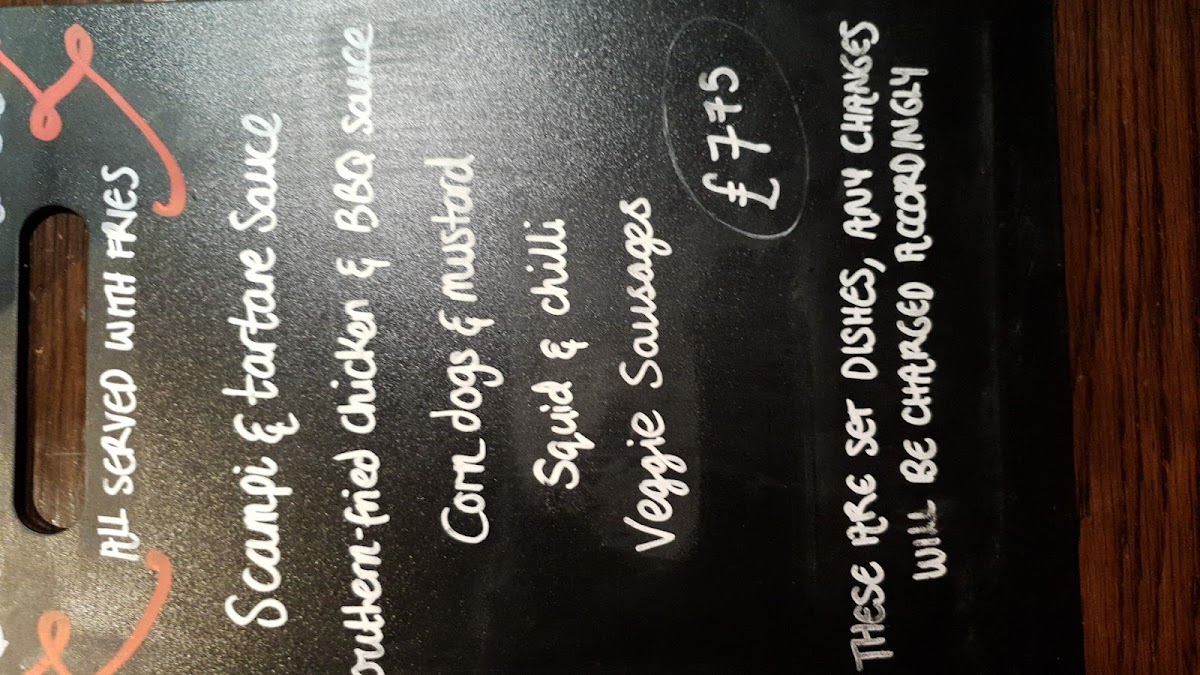 ALL SERVED WITH FRIES
Scampi & tartare Sauce
outhern-fried chicken & BBQ sauce
Corn dogs & mustard
Squid & chilli
Veggie Sausages
£775
THESE ARE SET DISHES, ANY CHANGES
WILL BE CHARGED ACCORDINGLY